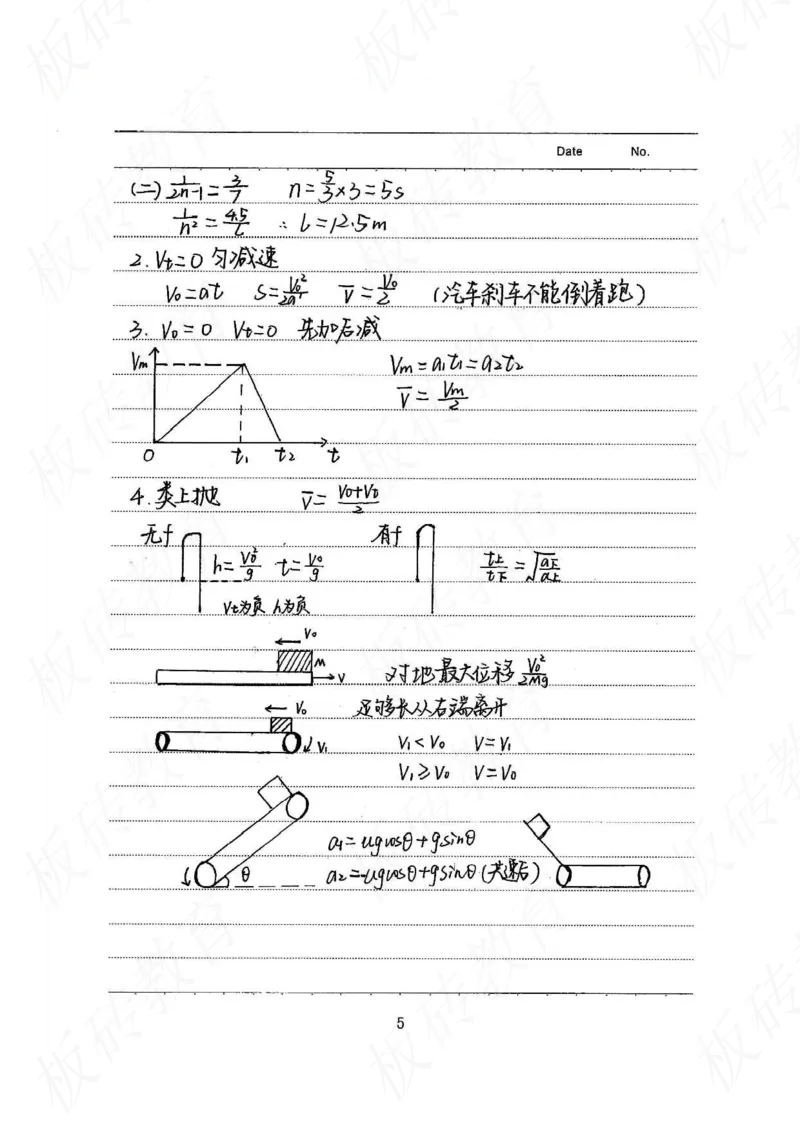 Date No.
(二) 1/(2n-1) = 3/7 n = 5/3×3 = 5s
1/n² = 4.5/L ∴ L=12.5m
2. Vt=0 匀减速
V₀=at S=V₀²/2a V̄=V₀/2 (汽车刹车不能倒着跑)
3. V₀=0 Vt=0 先加后减
Vm
Vm=a₁t₁=a₂t₂
V̄=Vm/2
0 t₁ t₂ t
4. 类上抛 V̄=(V₀+Vt)/2
无f 有f
h=V₀²/g t=V₀/g t上/t下=√(a下/a上)
Vt为负 h为负
V₀
M V 对地最大位移 V₀²/2Mg
V₀ 足够长从右端离开
V₁ V₁<V₀ V=V₁
V₁≥V₀ V=V₀
a₁=ugcosθ+gsinθ
θ a₂=-ugcosθ+gsinθ (共速后)
5
板砖教育